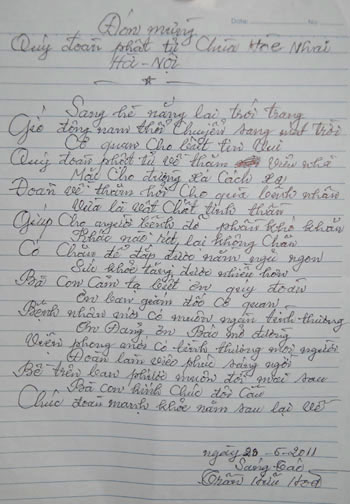 Đón mừng
Quý đoàn phật tử Chùa Hòe Nhai
Hà-Nội
Date: No:
Sang hè nắng lại trời trang
Gió đông nam thổi chuyển sang
Cơ quan cho biết tin vui
Quý đoàn phật tử về thăm viện nhà
Mặc cho đường xá cách xa
Đoàn về thăm hỏi cho quà bệnh nhân
Vừa là vật chất tinh thần
Giúp cho người bệnh đỡ phần khó khăn
rét, lại không chăn
Có chăn để đắp được nằm ngủ ngon
Sức khỏe tăng được nhiều hơn
Bà con cảm tạ biết ơn quý đoàn
Ơn ban giám đốc cơ quan
Bệnh nhân mới có muôn ngàn tình thương
Ơn Đảng ơn Bác mở đường
Viện phong mới có tình thương mọi người
Đoàn làm việc phúc sáng ngời
Bề trên ban phước muôn đời mai sau
Bà con kính chúc đôi câu
Chúc đoàn mạnh khỏe năm sau lại về
ngày 29-5-2011
Sáng tác
Trần Hữu Hoà